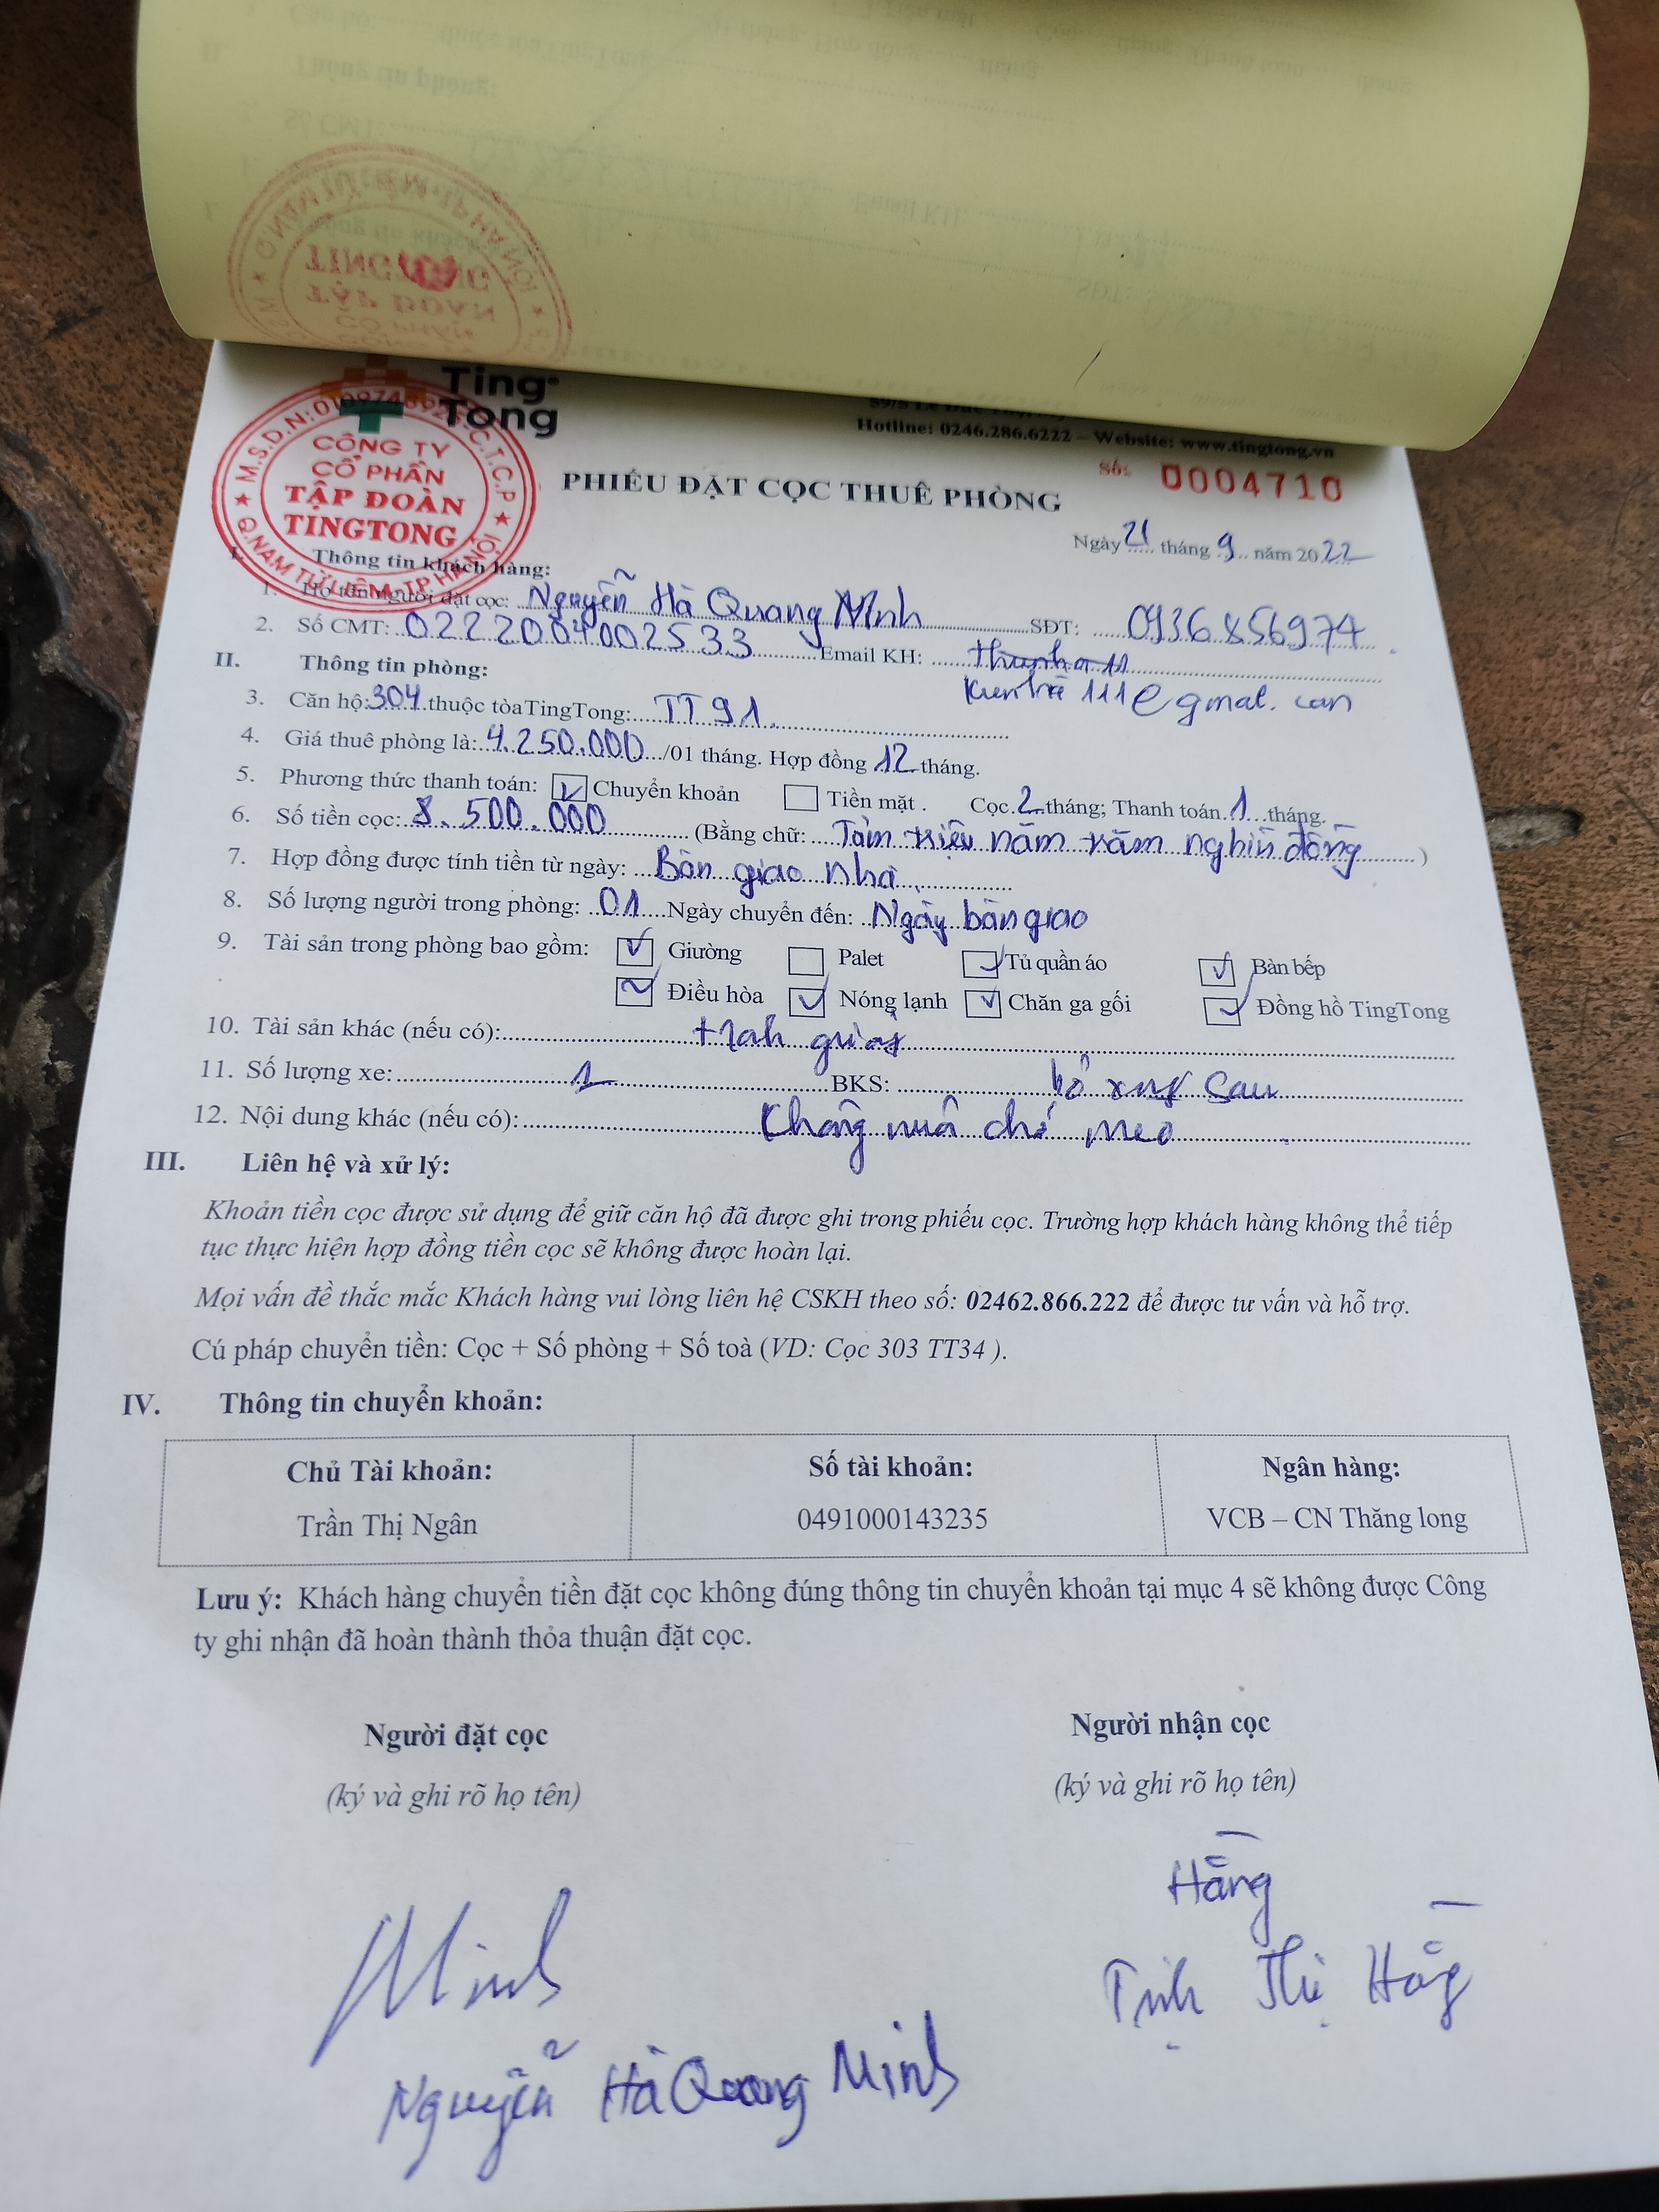 Ting
Tong
Hotline: 0246.286.6222 – Website: www.tingtong.vn
CÔNG TY
CỔ PHẦN
TẬP ĐOÀN
TINGTONG
Q.NAM TỪ LIÊM - TP HÀ NỘI
Số: 0004710
PHIẾU ĐẶT CỌC THUÊ PHÒNG
Ngày 21 tháng 9 năm 2022
I. Thông tin khách hàng:
1. Họ tên người đặt cọc: Nguyễn Hà Quang Minh SĐT: 0936856974
2. Số CMT: 0222004002533 Email KH:
II. Thông tin phòng:
3. Căn hộ: 304 thuộc tòa TingTong: TT 91
4. Giá thuê phòng là: 4.250.000 /01 tháng. Hợp đồng 12 tháng.
5. Phương thức thanh toán: Chuyển khoản Tiền mặt . Cọc 2 tháng; Thanh toán 1 tháng.
6. Số tiền cọc: 8.500.000 (Bằng chữ: Tám triệu năm trăm nghìn đồng )
7. Hợp đồng được tính tiền từ ngày: Bàn giao nhà
8. Số lượng người trong phòng: 01 Ngày chuyển đến: Ngày bàn giao
9. Tài sản trong phòng bao gồm: Giường Palet Tủ quần áo Bàn bếp
Điều hòa Nóng lạnh Chăn ga gối Đồng hồ TingTong
10. Tài sản khác (nếu có):
11. Số lượng xe: 1 BKS: bổ xung sau
12. Nội dung khác (nếu có): Không nuôi chó mèo
III. Liên hệ và xử lý:
Khoản tiền cọc được sử dụng để giữ căn hộ đã được ghi trong phiếu cọc. Trường hợp khách hàng không thể tiếp
tục thực hiện hợp đồng tiền cọc sẽ không được hoàn lại.
Mọi vấn đề thắc mắc Khách hàng vui lòng liên hệ CSKH theo số: 02462.866.222 để được tư vấn và hỗ trợ.
Cú pháp chuyển tiền: Cọc + Số phòng + Số toà (VD: Cọc 303 TT34 ).
IV. Thông tin chuyển khoản:
Chủ Tài khoản: Số tài khoản: Ngân hàng:
Trần Thị Ngân 0491000143235 VCB – CN Thăng long
Lưu ý: Khách hàng chuyển tiền đặt cọc không đúng thông tin chuyển khoản tại mục 4 sẽ không được Công
ty ghi nhận đã hoàn thành thỏa thuận đặt cọc.
Người đặt cọc Người nhận cọc
(ký và ghi rõ họ tên) (ký và ghi rõ họ tên)
Hằng
Minh
Trịnh Thị Hằng
Nguyễn Hà Quang Minh